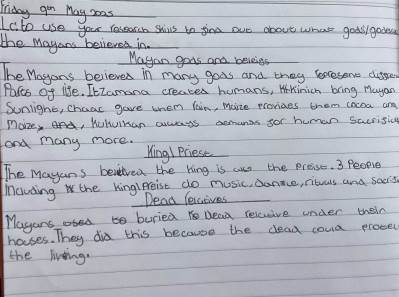 Friday 9th May 2025
Lc: to use your research skills to find out about what gods/godess
the Mayans believed in.
Mayan gods and beleifs
The Mayans believed in many gods and they represent differe
Parts of life. Itzamana created humans, Kinich bring Mayan
Sunlight, Chaac gave them rain, Maize provides them cocoa and
Maize, and, Kukulkan always demands for human sacrifice
and many more.
King/Priest
The Mayans believed the king is the Preist. 3 People
Including the King/Preist do music, dannce, rituals and sacrif
Dead relatives
Mayans used to buried Dead relative under their
houses. They did this because the dead could protec
the living.